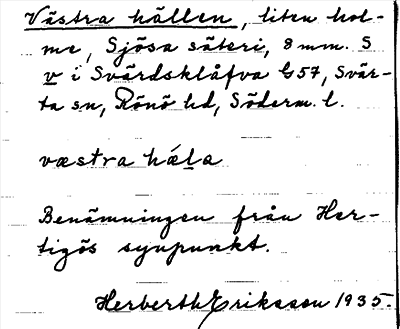 Västra hällen, liten hol-
me, Sjösa säteri, 8 mm. S
v i Svärdsklåfva G 57, Svär-
ta sn, Rönö hd, Söderm. l.
væstra hä́la
Benämningen från Her-
tigös synpunkt.
Herberth Eriksson 1935.